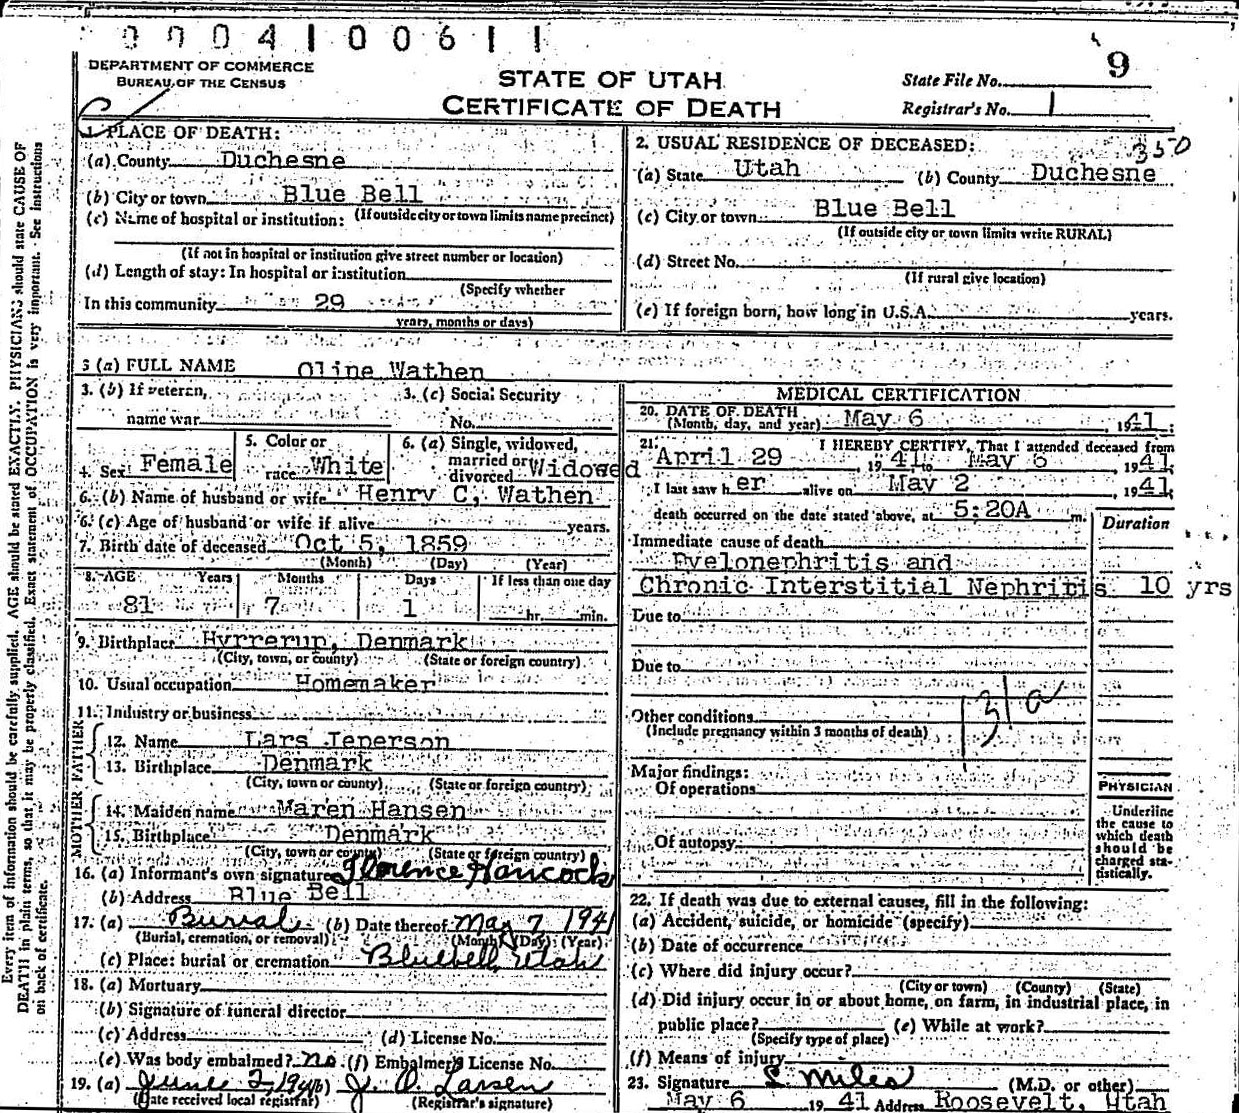 0004100611
DEPARTMENT OF COMMERCE
BUREAU OF THE CENSUS
STATE OF UTAH
CERTIFICATE OF DEATH
State File No. 9
Registrar's No. 1
350
1. PLACE OF DEATH:
(a) County Duchesne
(b) City or town Blue Bell
(c) Name of hospital or institution: (If outside city or town limits name precinct)
(If not in hospital or institution give street number or location)
(d) Length of stay: In hospital or institution
(Specify whether
In this community 29
years, months or days)
2. USUAL RESIDENCE OF DECEASED:
(a) State Utah (b) County Duchesne
(c) City or town Blue Bell
(If outside city or town limits write RURAL)
(d) Street No.
(If rural give location)
(e) If foreign born, how long in U.S.A. years.
3 (a) FULL NAME Oline Wathen
3. (b) If veteran,
name war
3. (c) Social Security
No.
4. Sex Female
5. Color or
race White
6. (a) Single, widowed,
married or
divorced Widowed
6. (b) Name of husband or wife Henry C. Wathen
6. (c) Age of husband or wife if alive years.
7. Birth date of deceased Oct 5, 1859
(Month) (Day) (Year)
8. AGE Years Months Days If less than one day
81 7 1 hr. min.
9. Birthplace Hyrrerup, Denmark
(City, town, or county) (State or foreign country)
10. Usual occupation Homemaker
11. Industry or business
FATHER
12. Name Lars Jeperson
13. Birthplace Denmark
(City, town or county) (State or foreign country)
MOTHER
14. Maiden name Maren Hansen
15. Birthplace Denmark
(City, town or county) (State or foreign country)
16. (a) Informant's own signature Florence Hancock
(b) Address Blue Bell
17. (a) Burial (b) Date thereof May 7 1941
(Burial, cremation, or removal) (Month) (Day) (Year)
(c) Place: burial or cremation Bluebell, Utah
18. (a) Mortuary
(b) Signature of funeral director
(c) Address (d) License No.
(e) Was body embalmed? no (f) Embalmer's License No.
19. (a) June 2, 1941 (b) J. O. Larsen
(Date received local registrar) (Registrar's signature)
MEDICAL CERTIFICATION
20. DATE OF DEATH
(Month, day, and year) May 6, 1941
21. I HEREBY CERTIFY, That I attended deceased from
April 29, 1941 to May 6, 1941;
I last saw h er alive on May 2, 1941;
death occurred on the date stated above, at 5:20A m.
Duration
Immediate cause of death
Pyelonephritis and
Chronic Interstitial Nephritis 10 yrs
Due to
Due to
131a
Other conditions
(Include pregnancy within 3 months of death)
Major findings:
Of operations
Of autopsy
PHYSICIAN
Underline
the cause to
which death
should be
charged sta-
tistically.
22. If death was due to external causes, fill in the following:
(a) Accident, suicide, or homicide (specify)
(b) Date of occurrence
(c) Where did injury occur?
(City or town) (County) (State)
(d) Did injury occur in or about home, on farm, in industrial place, in
public place? (e) While at work?
(Specify type of place)
(f) Means of injury
23. Signature S. Miles (M.D. or other)
May 6 1941 Address Roosevelt, Utah
Every item of information should be carefully supplied. AGE should be stated EXACTLY. PHYSICIANS should state CAUSE OF
DEATH in plain terms, so that it may be properly classified. Exact statement of OCCUPATION is very important. See instructions
on back of certificate.